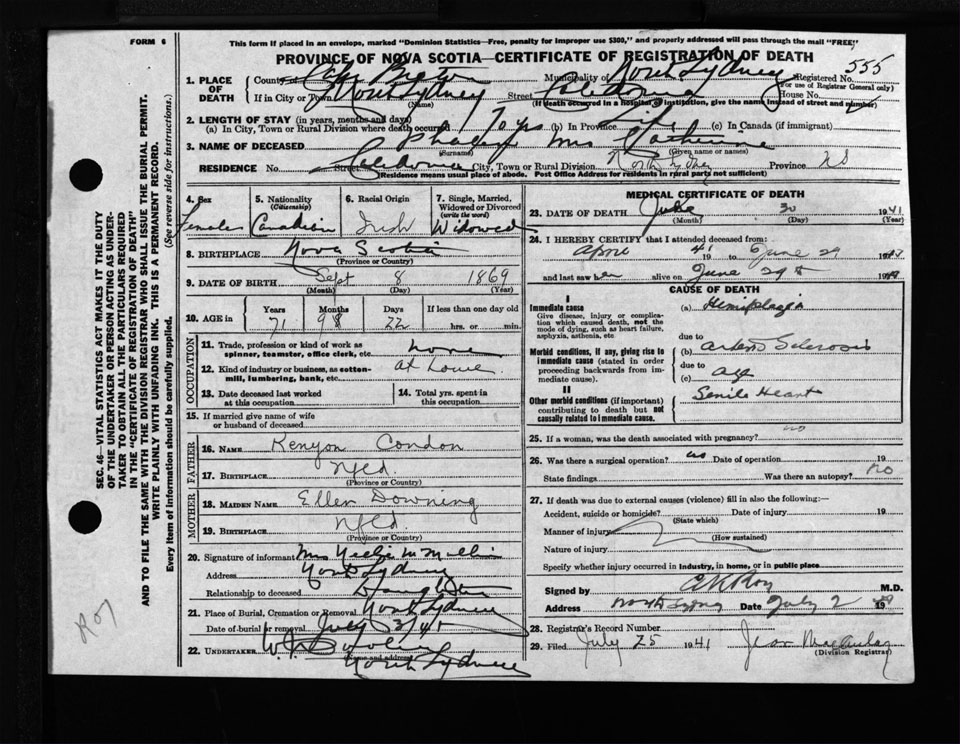 FORM 6
This form if placed in an envelope, marked "Dominion Statistics—Free, penalty for improper use $300," and properly addressed will pass through the mail "FREE"
PROVINCE OF NOVA SCOTIA—CERTIFICATE OF REGISTRATION OF DEATH
555
1. PLACE OF DEATH
County of Cape Breton Municipality of North Sydney Registered No.
(For use of Registrar General only)
If in City or Town North Sydney Street Caledonia House No.
(Name) (If death occurred in a hospital or institution, give the name instead of street and number)
2. LENGTH OF STAY (in years, months and days)
(a) In City, Town or Rural Division where death occurred (b) In Province Life (c) In Canada (if immigrant)
3. NAME OF DECEASED Mrs Catherine
(Surname) (Given name or names)
RESIDENCE No. Street Caledonia City, Town or Rural Division North Sydney Province NS
(Residence means usual place of abode. Post Office Address for residents in rural parts not sufficient)
4. Sex
Female
5. Nationality
(Citizenship)
Canadian
6. Racial Origin
Irish
7. Single, Married, Widowed or Divorced
(write the word)
Widowed
8. BIRTHPLACE Nova Scotia
(Province or Country)
9. DATE OF BIRTH Sept 8 1869
(Month) (Day) (Year)
10. AGE in
Years Months Days If less than one day old
71 9 22 hrs. or min.
OCCUPATION
11. Trade, profession or kind of work as spinner, teamster, office clerk, etc. none
12. Kind of industry or business, as cotton-mill, lumbering, bank, etc. at home
13. Date deceased last worked at this occupation
14. Total yrs. spent in this occupation
15. If married give name of wife or husband of deceased
FATHER
16. Name Kenyon Condon
17. Birthplace Nfld.
(Province or Country)
MOTHER
18. Maiden Name Ellen Downing
19. Birthplace Nfld.
(Province or Country)
20. Signature of informant Mrs Nellie
Address North Sydney
Relationship to deceased Daughter
21. Place of Burial, Cremation or Removal North Sydney
Date of burial or removal July 3/41
22. UNDERTAKER
(Name and address)
North Sydney
MEDICAL CERTIFICATE OF DEATH
23. DATE OF DEATH 1941
(Month) (Day) (Year)
24. I HEREBY CERTIFY that I attended deceased from:
April 41 19 to June 29 19
and last saw her alive on June 29 19
CAUSE OF DEATH
I
Immediate cause
Give disease, injury or complication which caused death, not the mode of dying, such as heart failure, asphyxia, asthenia, etc.
(a) Hemiplegia
due to
Morbid conditions, if any, giving rise to immediate cause (stated in order proceeding backwards from immediate cause).
(b) Sclerosis
due to
(c) age
II
Other morbid conditions (if important) contributing to death but not causally related to immediate cause.
Senile Heart
25. If a woman, was the death associated with pregnancy? no
26. Was there a surgical operation? no Date of operation 19
State findings Was there an autopsy? no
27. If death was due to external causes (violence) fill in also the following:—
Accident, suicide or homicide? Date of injury 19
(State which)
Manner of injury
(How sustained)
Nature of injury
Specify whether injury occurred in industry, in home, or in public place
Signed by Roy M.D.
Address North Sydney Date July 2 19
28. Registrar's Record Number
29. Filed July 25 1941 Jean
(Division Registrar)
SEC. 46—VITAL STATISTICS ACT MAKES IT THE DUTY
OF THE UNDERTAKER OR PERSON ACTING AS UNDER-
TAKER TO OBTAIN ALL THE PARTICULARS REQUIRED
IN THE "CERTIFICATE OF REGISTRATION OF DEATH"
AND TO FILE THE SAME WITH THE DIVISION REGISTRAR WHO SHALL ISSUE THE BURIAL PERMIT.
WRITE PLAINLY WITH UNFADING INK. THIS IS A PERMANENT RECORD.
Every item of information should be carefully supplied. (See reverse side for instructions.)
Roy